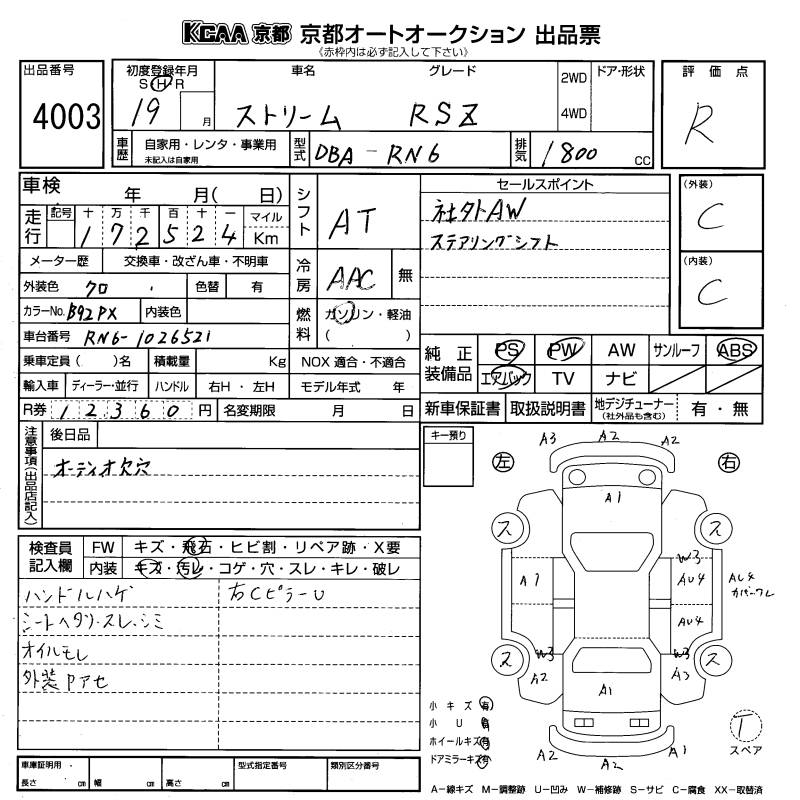 KCAA 京都 京都オートオークション 出品票
《赤枠内は必ず記入して下さい》
出品番号
4003
初度登録年月
S H R
19 月
車名
ストリーム
グレード
RSZ
2WD
4WD
ドア・形状
評価点
R
車歴
自家用・レンタ・事業用
未記入は自家用
型式
DBA-RN6
排気
1800 CC
車検 年 月( 日)
走行
記号 十 万 千 百 十 一 マイル
1 7 2 5 2 4 Km
メーター歴 交換車・改ざん車・不明車
外装色 クロ 色替 有
カラーNo. B92PX 内装色
車台番号 RN6-1026521
乗車定員( )名 積載量 Kg NOX 適合・不適合
輸入車 ディーラー・並行 ハンドル 右H・左H モデル年式 年
R券 1 2 3 6 0 円 名変期限 月 日
シフト AT
冷房 AAC 無
燃料 ガソリン・軽油
( )
セールスポイント
社外AW
ステアリングシフト
(外装)
C
(内装)
C
純正装備品
PS PW AW サンルーフ ABS
エアバック TV ナビ
新車保証書 取扱説明書 地デジチューナー 有・無
(社外品も含む)
注意事項(出品店記入)
後日品
オーディオ欠穴
キー預り
検査員記入欄
FW キズ・飛石・ヒビ割・リペア跡・X要
内装 キズ・汚レ・コゲ・穴・スレ・キレ・破レ
ハンドルハゲ 右CピラーU
シートヘタリ・スレ、シミ
オイルモレ
外装Pアセ
左 右
A3 A2 A2
A1
ス ス
W3
A1 AU4 AU4
カバーワレ
AU4
ス W3 W3 ス
A2 A3
A1
A2 A2 A1
小キズ 有
小U 有
ホイールキズ 有
ドアミラーキズ 有
T
スペア
車庫証明用・
長さ cm 幅 cm 高さ cm
型式指定番号
類別区分番号
A−線キズ M−調整跡 U−凹み W−補修跡 S−サビ C−腐食 XX−取替済